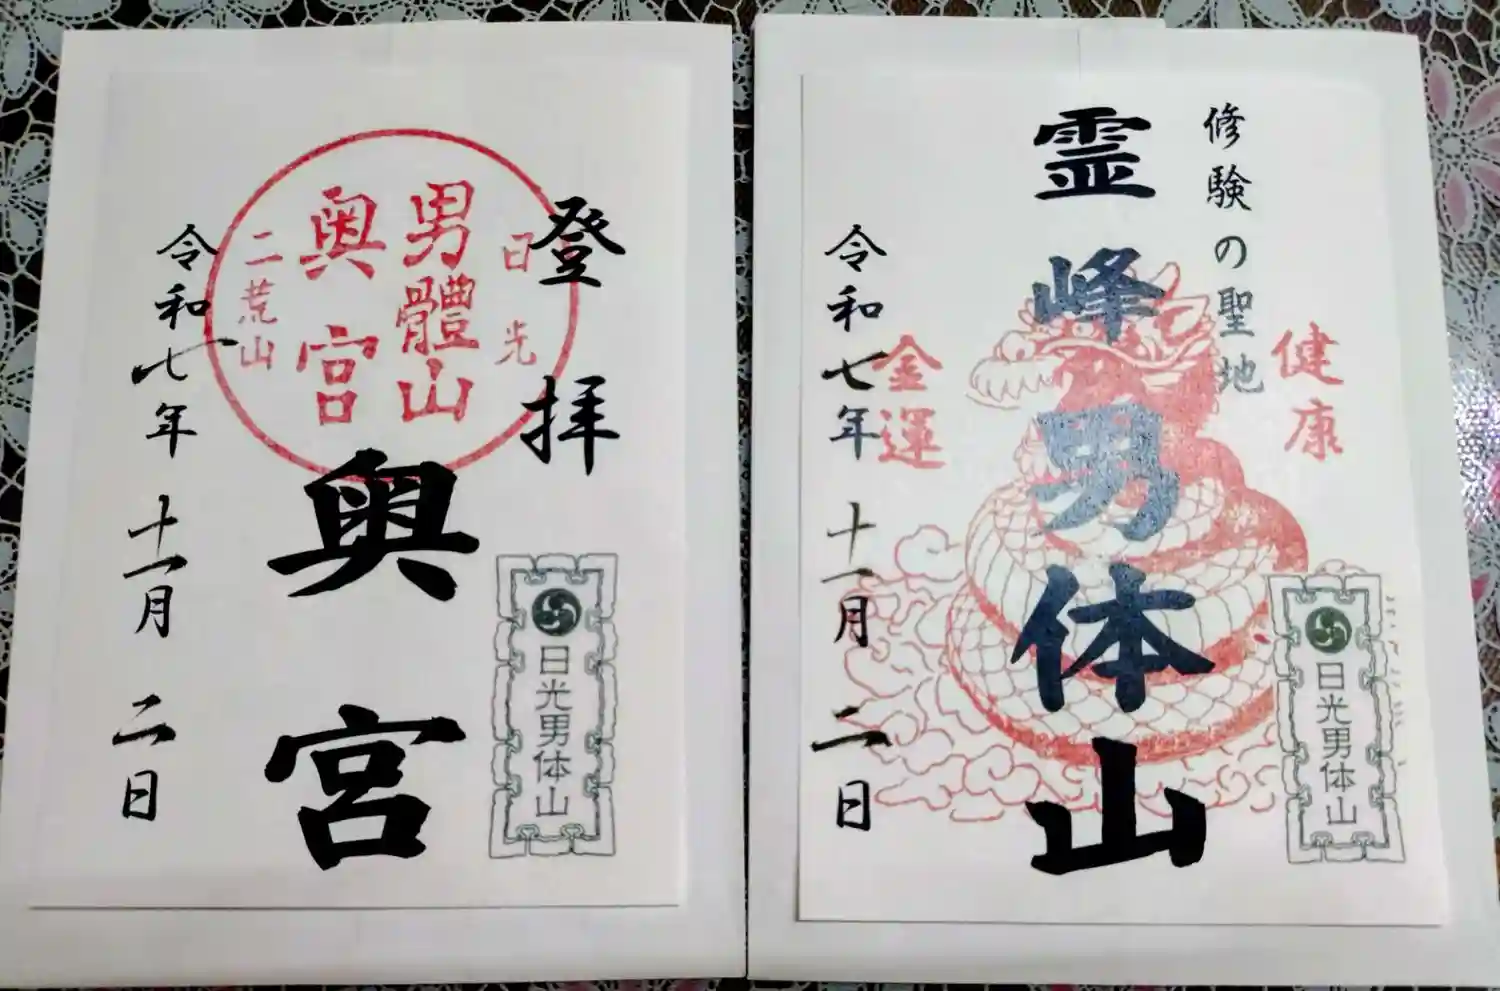 登拝
日光
男體山
奥宮
二荒山
奥宮
日光男体山
令和七年十一月二日
修験の聖地
健康
霊峰男体山
金運
日光男体山
令和七年十一月二日